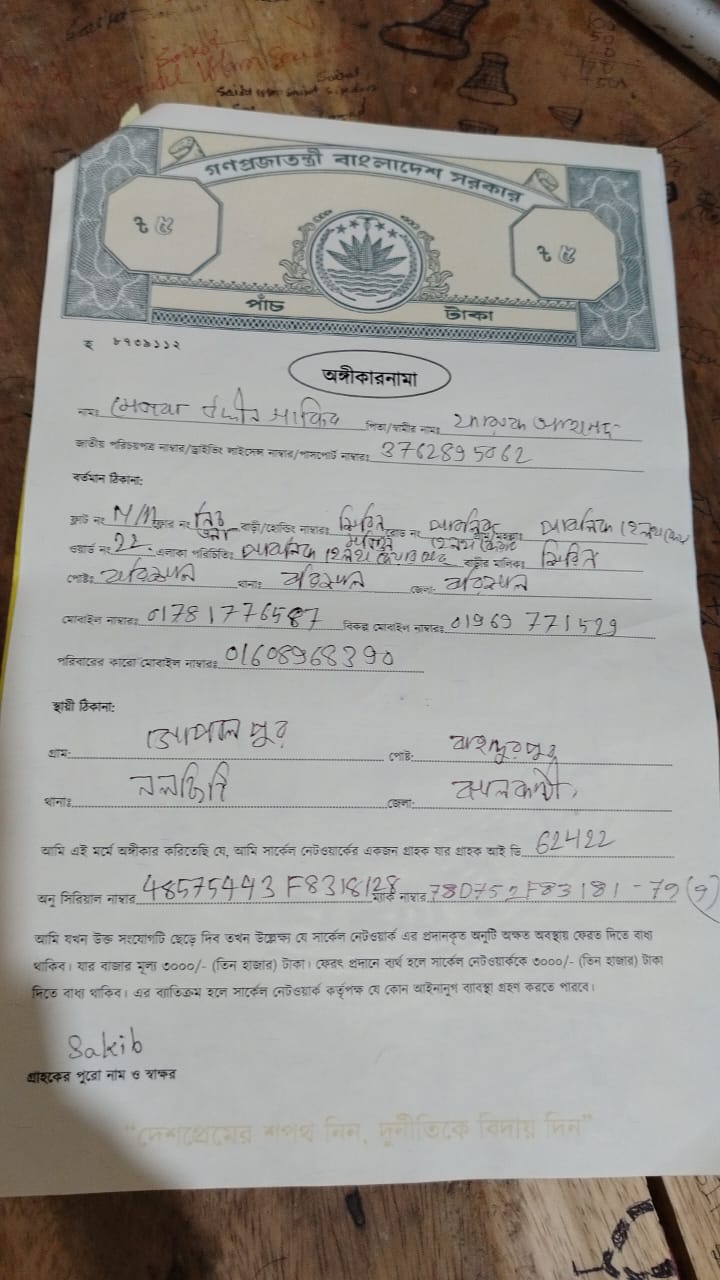 গণপ্রজাতন্ত্রী বাংলাদেশ সরকার
৳ ৫ ৳ ৫
পাঁচ টাকা
৮৭০৯১১২
অঙ্গীকারনামা
নামঃ সাকিব পিতা/স্বামীর নামঃ ফারুক আহমেদ
জাতীয় পরিচয়পত্র নাম্বার/ড্রাইভিং লাইসেন্স নাম্বার/পাসপোর্ট নাম্বারঃ 3762895062
বর্তমান ঠিকানা:
ফ্ল্যাট নং N/M ফ্লোর নং বাড়ী/হোল্ডিং নাম্বারঃ রোড নং
ওয়ার্ড নং 22. এলাকা পরিচিতিঃ বাড়ীর মালিকঃ
পোষ্টঃ বরিশাল থানাঃ বরিশাল জেলা: বরিশাল
মোবাইল নাম্বারঃ 01781776587 বিকল্প মোবাইল নাম্বারঃ 01969 771529
পরিবারের কারো মোবাইল নাম্বারঃ 01608968390
স্থায়ী ঠিকানা:
গ্রাম: গোপালপুর পোষ্ট: বাহাদুরপুর
থানাঃ নলছিটি জেলা: ঝালকাঠী
আমি এই মর্মে অঙ্গীকার করিতেছি যে, আমি সার্কেল নেটওয়ার্কের একজন গ্রাহক যার গ্রাহক আই ডি 62422
অনু সিরিয়াল নাম্বার 48575443 F8318128 ম্যাক নাম্বার 78D752F83181-79(9)
আমি যখন উক্ত সংযোগটি ছেড়ে দিব তখন উল্লেক্ষ্য যে সার্কেল নেটওয়ার্ক এর প্রদানকৃত অনুটি অক্ষত অবস্থায় ফেরত দিতে বাধ্য
থাকিব। যার বাজার মূল্য ৩০০০/- (তিন হাজার) টাকা। ফেরৎ প্রদানে ব্যর্থ হলে সার্কেল নেটওয়ার্ককে ৩০০০/- (তিন হাজার) টাকা
দিতে বাধ্য থাকিব। এর ব্যতিক্রম হলে সার্কেল নেটওয়ার্ক কর্তৃপক্ষ যে কোন আইনানুগ ব্যাবস্থা গ্রহণ করতে পারবে।
Sakib
গ্রাহকের পুরো নাম ও স্বাক্ষর
"দেশপ্রেমের শপথ নিন, দুর্নীতিকে বিদায় দিন"